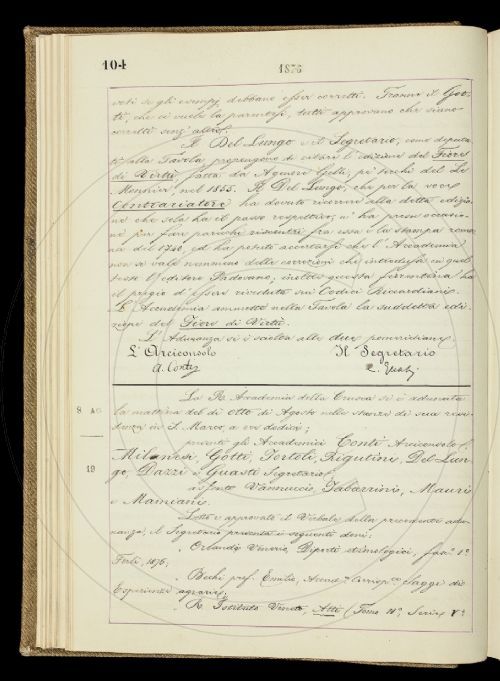 104
1876
voti se gli esempj debbano esser corretti. Tranne il Got-
ti, che ci vuole la parentesi, tutti approvano che siano
corretti senz'altro.
Il Del Lungo e il Segretario, come deputa-
ti alla Tavola, propongono di citare l'edizione del Fiore
di Virtù fatta da Agenore Gelli, pe' torchi del Le
Monnier, nel 1855. Il Del Lungo, che per la voce
Contrariatore ha dovuto ricorrere alla detta edizio-
ne che sola ha il passo respettivo, n'ha preso occasio-
ne per fare parecchi riscontri fra essa e la stampa roma-
na del 1740, ed ha potuto accertarsi che l'Accademia
non si vale nemmeno delle correzioni che introdusse in quel
testo l'editore Padovano; inoltre questa fiorentina ha
il pregio d'essere riveduta sui Codici Riccardiani.
L'Accademia ammette nella Tavola la suddetta edi-
zione del Fiore di Virtù.
L'Adunanza si è sciolta alle due pomeridiane.
L'Arciconsolo Il Segretario
A. Conti C. Guasti
8 AG.
La R. Accademia della Crusca si è adunata
la mattina del dì otto di Agosto nelle stanze di sua resi-
denza in S. Marco, a ore dodici;
presenti gli Accademici Conti Arciconsolo,
Milanesi, Gotti, Tortoli, Rigutini, Del Lun-
go, Dazzi e Guasti Segretario;
Vannucci, Tabarrini, Mauri
e Mamiani.
19
Letto e approvato il Verbale della precedente adu-
nanza, il Segretario presenta i seguenti doni:
Orlandi Venerio, Diporti etimologici, fasc. 1º
Forlì, 1876;
Bechi prof. Emilio, Accad. Corrisp. Saggi di
Esperienze agrarie;
R. Istituto Veneto, Atti (Tomo IIº, Serie Vª